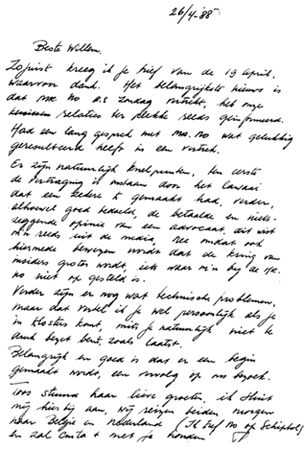 26/4-88
Beste Willem.
Zojuist kreeg ik je brief van de 19 april,
waarvoor dank. Het belangrijkste nieuws is
dat mr. No a.s. zondag vertrekt, het onze
relaties ter plekke reeds geïnformeerd.
Had een lang gesprek met mr. No wat gelukkig
geresulteerd heeft in een vertrek.
Er zijn natuurlijk knelpunten, ten eerste
de vertraging is ontstaan door het lawaai
dat een ieder gemaakt had, verder,
alhoewel goed bedoeld, de betaalde en niets-
zeggende opinie van een advocaat, dit wist
m'n reeds uit de media, nee omdat ook
hiermede bewezen wordt dat de kring van
insiders groter wordt, iets waar m'n bij de
no niet op gesteld is.
Verder zijn er nog wat technische problemen,
maar dat vertel ik je wel persoonlijk als je
in Klosters komt, mits je natuurlijk niet te
druk bezet bent zoals laatst.
Belangrijk en goed is dat er een begin
gemaakt wordt, een vervolg op ons bezoek.
Toos stuurt haar lieve groeten, ik sluit
mij hierbij aan, wij reizen beiden morgen
naar België en Nederland (Ik tref No op Schiphol)
en zal contact met je houden